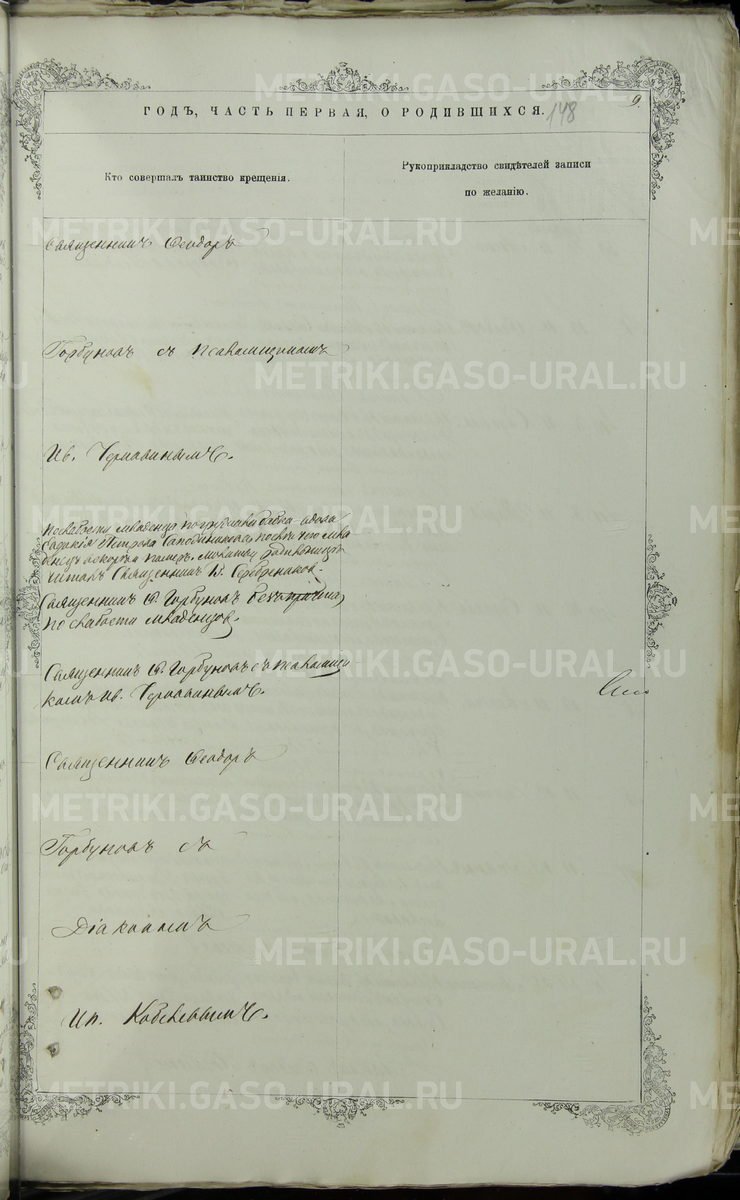 9.
ГОДЪ, ЧАСТЬ ПЕРВАЯ, О РОДИВШИХСЯ.
148
Кто совершалъ таинство крещенія.
Рукоприкладство свидѣтелей записи
по желанію.
Священникъ Ѳеодоръ
Горбуновъ съ псаломщикомъ
Ив. Чернавинымъ.
По слабости младенца погружала бабка
младенецъ вскорѣ
читалъ Священникъ
Священникъ Ѳ. Горбуновъ безъ причта
по слабости младенцовъ.
Священникъ Ѳ. Горбуновъ съ псаломщи
комъ Ив. Чернавинымъ.
Священникъ Ѳеодоръ
Горбуновъ съ
Діакономъ
Ип. Кобелевымъ.
METRIKI.GASO-URAL.RU